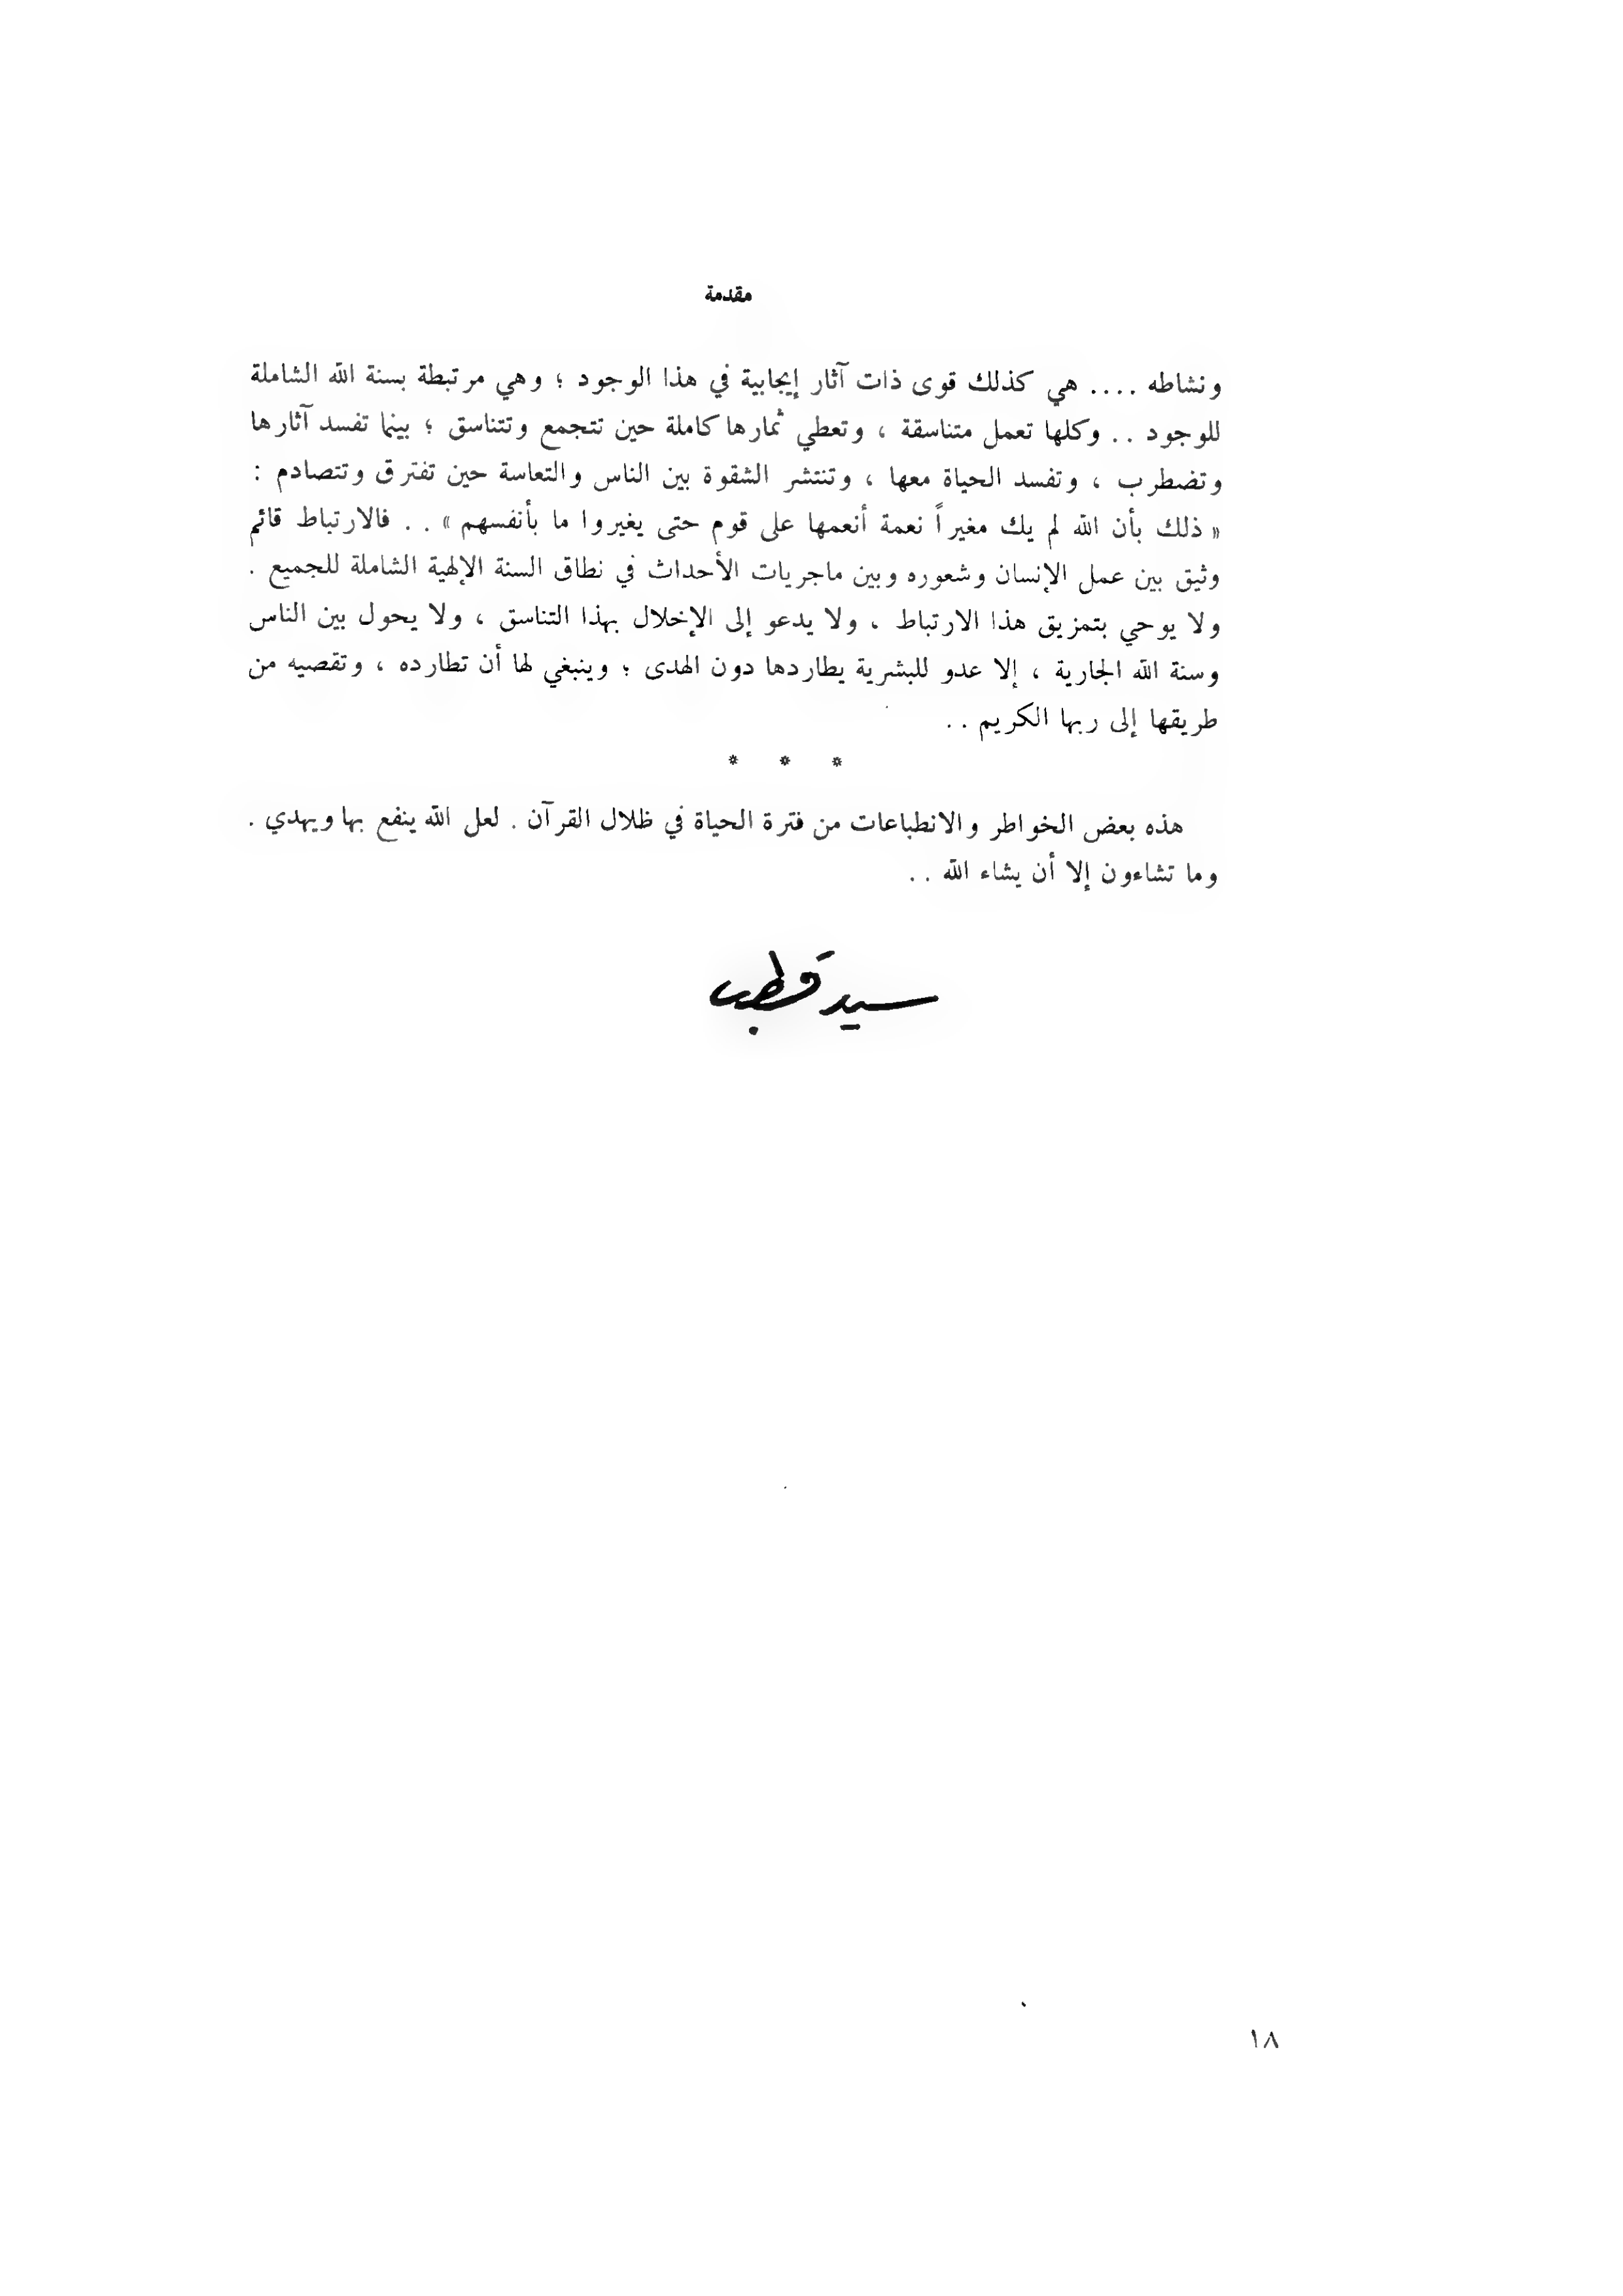 مقدمة
ونشاطه .... هي كذلك قوى ذات آثار إيجابية في هذا الوجود ؛ وهي مرتبطة بسنة الله الشاملة
للوجود .. وكلها تعمل متناسقة ، وتعطي ثمارها كاملة حين تتجمع وتتناسق ؛ بينما تفسد آثارها
وتضطرب ، وتفسد الحياة معها ، وتنتشر الشقوة بين الناس والتعاسة حين تفترق وتتصادم :
« ذلك بأن الله لم يك مغيراً نعمة أنعمها على قوم حتى يغيروا ما بأنفسهم » .. فالارتباط قائم
وثيق بين عمل الإنسان وشعوره وبين ماجريات الأحداث في نطاق السنة الإلهية الشاملة للجميع .
ولا يوحي بتمزيق هذا الارتباط ، ولا يدعو إلى الإخلال بهذا التناسق ، ولا يحول بين الناس
وسنة الله الجارية ، إلا عدو للبشرية يطاردها دون الهدى ؛ وينبغي لها أن تطارده ، وتقصيه من
طريقها إلى ربها الكريم ..
* * *
هذه بعض الخواطر والانطباعات من فترة الحياة في ظلال القرآن . لعل الله ينفع بها ويهدي .
وما تشاءون إلا أن يشاء الله ..
سيد قطب
١٨